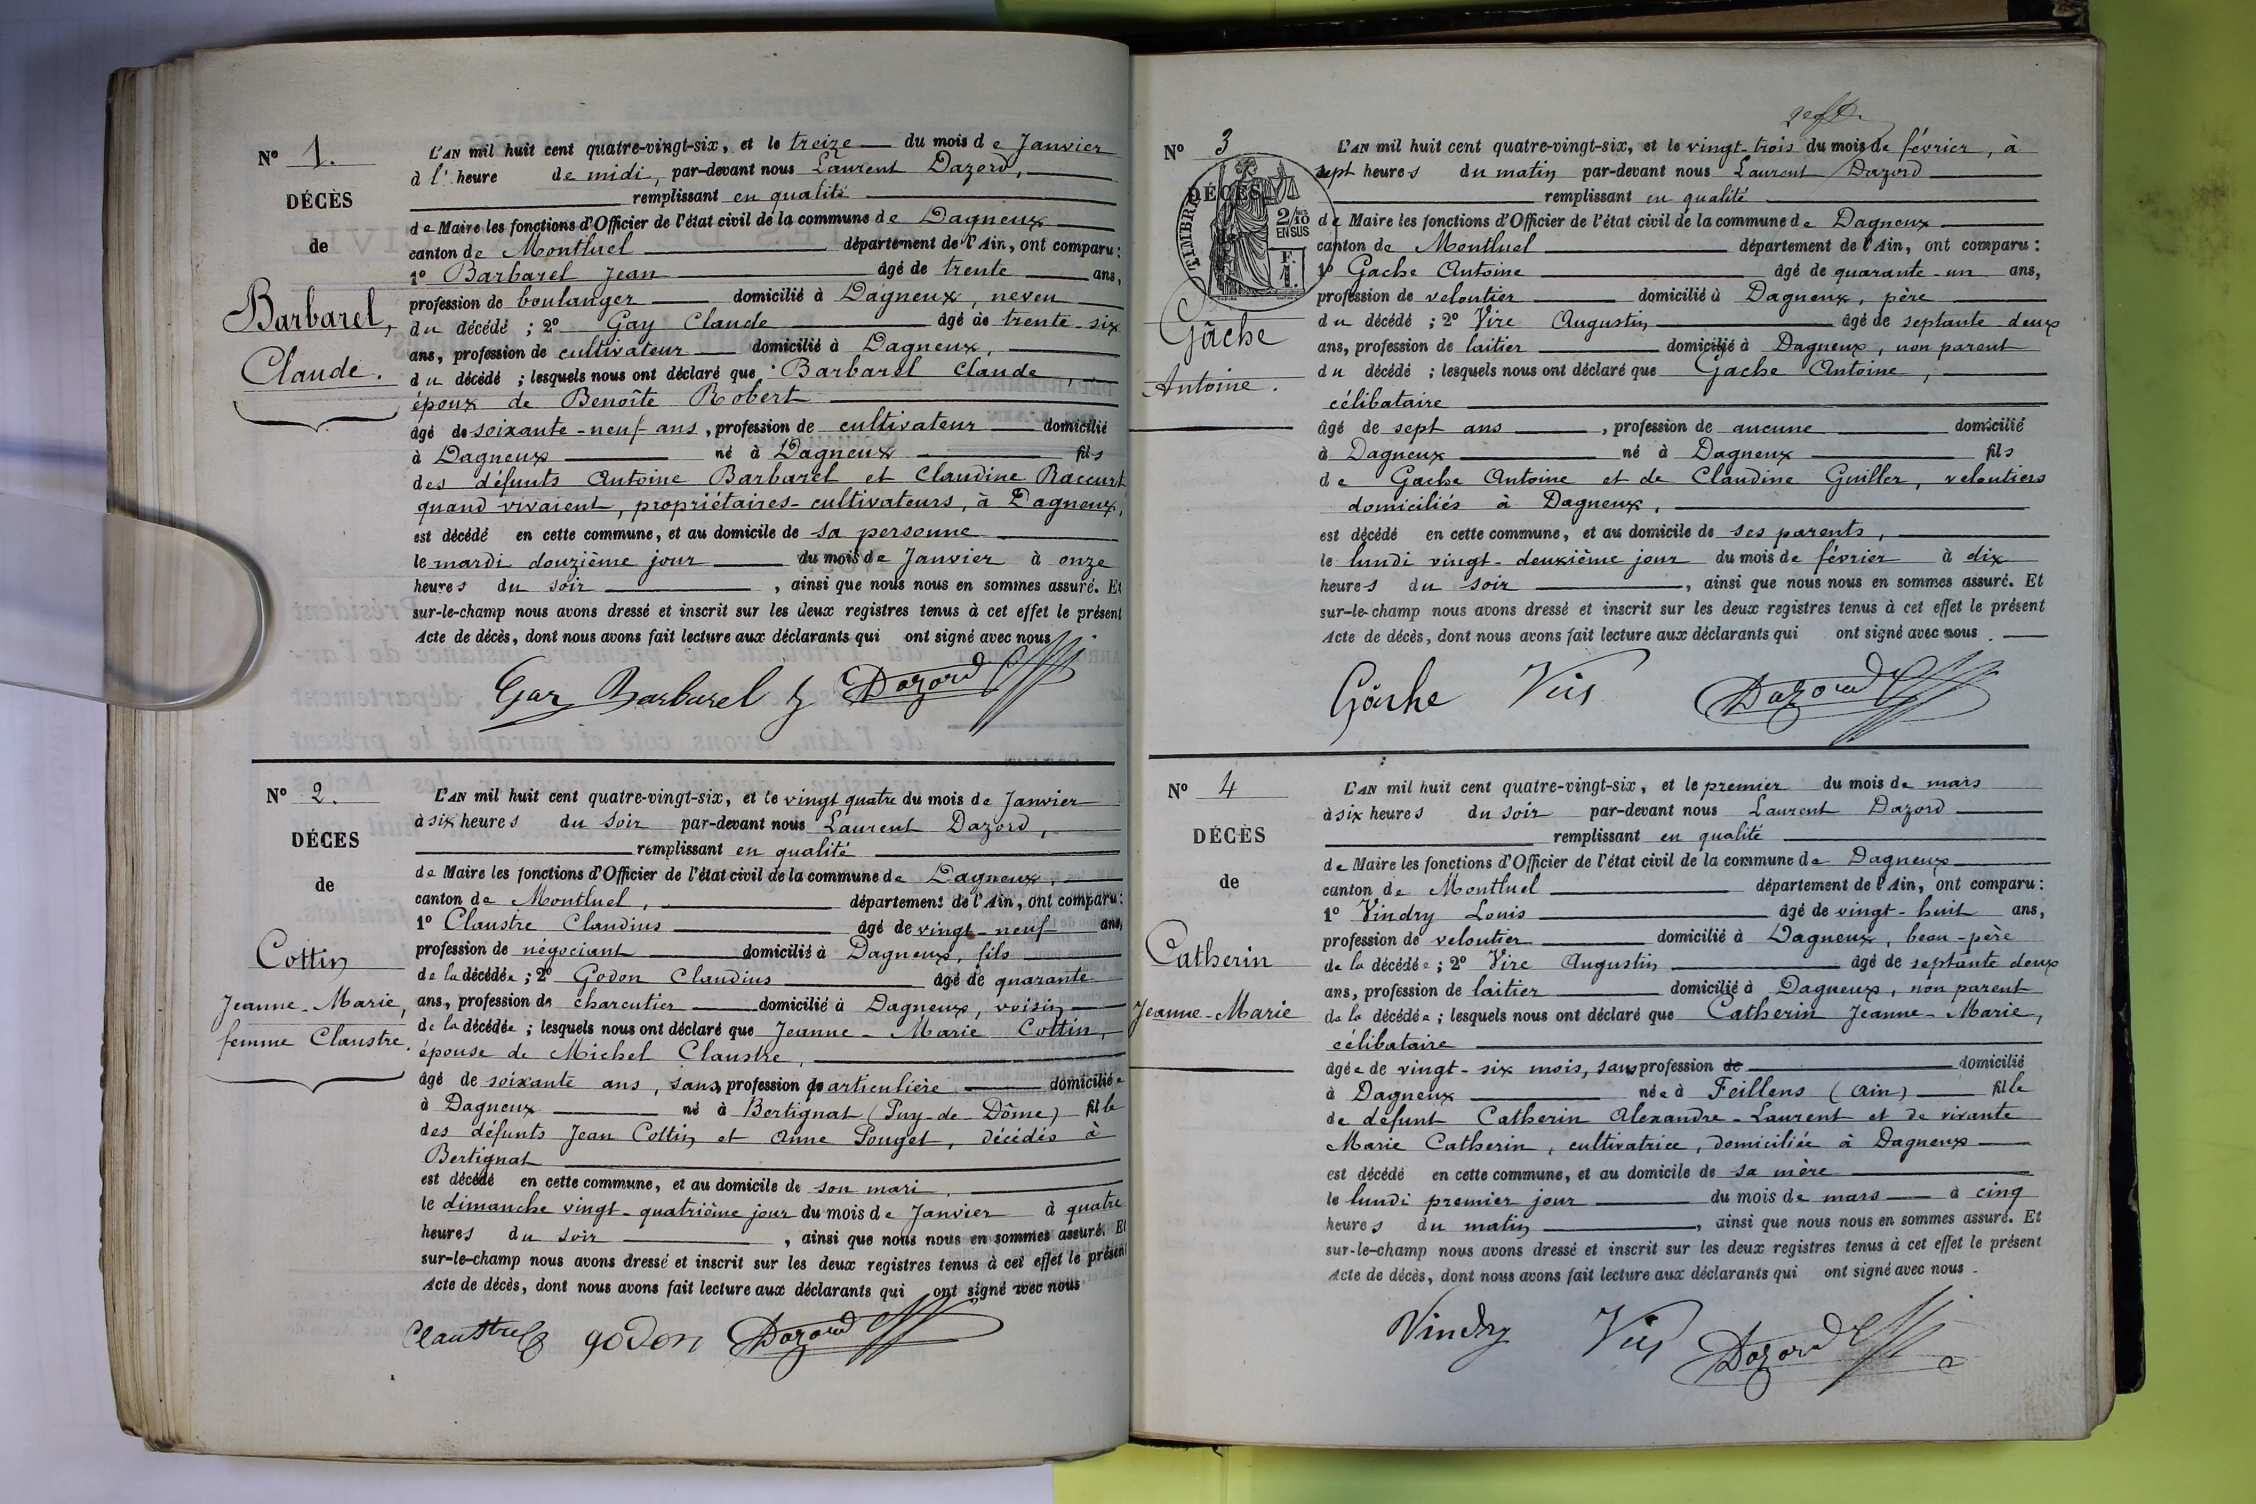 N° 1.
DÉCÈS
de
Barbarel,
Claude.
L'AN mil huit cent quatre-vingt-six, et le treize du mois de Janvier
à l'heure de midi, par-devant nous Laurent Dazord,
remplissant en qualité
de Maire les fonctions d'Officier de l'état civil de la commune de Dagneux
canton de Montluel département de l'Ain, ont comparu:
1° Barbarel Jean âgé de trente ans,
profession de boulanger domicilié à Dagneux, neveu
du décédé; 2° Gay Claude âgé de trente-six
ans, profession de cultivateur domicilié à Dagneux,
du décédé; lesquels nous ont déclaré que Barbarel Claude,
époux de Benoîte Robert
âgé de soixante-neuf ans, profession de cultivateur domicilié
à Dagneux né à Dagneux fils
des défunts Antoine Barbarel et Claudine Raccurt
quand vivaient, propriétaires-cultivateurs, à Dagneux,
est décédé en cette commune, et au domicile de sa personne
le mardi douzième jour du mois de Janvier à onze
heures du soir, ainsi que nous nous en sommes assuré. Et
sur-le-champ nous avons dressé et inscrit sur les deux registres tenus à cet effet le présent
Acte de décès, dont nous avons fait lecture aux déclarants qui ont signé avec nous
Gay Barbarel J Dazord
N° 2.
DÉCES
de
Cottin
Jeanne-Marie,
femme Claustre.
L'AN mil huit cent quatre-vingt-six, et le vingt quatre du mois de Janvier
à six heures du soir par-devant nous Laurent Dazord,
remplissant en qualité
de Maire les fonctions d'Officier de l'état civil de la commune de Dagneux,
canton de Montluel, département de l'Ain, ont comparu:
1° Claustre Claudius âgé de vingt-neuf ans,
profession de négociant domicilié à Dagneux, fils
de la décédée; 2° Godon Claudius âgé de quarante
ans, profession de charcutier domicilié à Dagneux, voisin
de la décédée; lesquels nous ont déclaré que Jeanne-Marie Cottin,
épouse de Michel Claustre,
âgé de soixante ans, sans profession particulière domiciliée
à Dagneux né à Bertignat (Puy-de-Dôme) fille
des défunts Jean Cottin et Anne Pouget, décédés à
Bertignat
est décédé en cette commune, et au domicile de son mari,
le dimanche vingt-quatrième jour du mois de Janvier à quatre
heures du soir, ainsi que nous nous en sommes assuré. Et
sur-le-champ nous avons dressé et inscrit sur les deux registres tenus à cet effet le présent
Acte de décès, dont nous avons fait lecture aux déclarants qui ont signé avec nous
Claustre godon Dazord
N° 3
DÉCÈS
TIMBRE
2/10 EN SUS
F. 1.
Gâche
Antoine.
L'AN mil huit cent quatre-vingt-six, et le vingt-trois du mois de février, à
sept heures du matin par-devant nous Laurent Dazord
remplissant en qualité
de Maire les fonctions d'Officier de l'état civil de la commune de Dagneux
canton de Montluel département de l'Ain, ont comparu:
1° Gache Antoine âgé de quarante-un ans,
profession de veloutier domicilié à Dagneux, père
du décédé; 2° Vire Augustin âgé de septante deux
ans, profession de laitier domicilié à Dagneux, non parent
du décédé; lesquels nous ont déclaré que Gache Antoine,
célibataire
âgé de sept ans, profession de aucune domicilié
à Dagneux né à Dagneux fils
de Gache Antoine et de Claudine Guiller, veloutiers
domiciliés à Dagneux,
est décédé en cette commune, et au domicile de ses parents,
le lundi vingt-deuxième jour du mois de février à dix
heures du soir, ainsi que nous nous en sommes assuré. Et
sur-le-champ nous avons dressé et inscrit sur les deux registres tenus à cet effet le présent
Acte de décès, dont nous avons fait lecture aux déclarants qui ont signé avec nous.
Gâche Dazord
N° 4
DÉCÈS
de
Catherin
Jeanne-Marie
L'AN mil huit cent quatre-vingt-six, et le premier du mois de mars
à six heures du soir par-devant nous Laurent Dazord
remplissant en qualité
de Maire les fonctions d'Officier de l'état civil de la commune de Dagneux
canton de Montluel département de l'Ain, ont comparu:
1° Vindry Louis âgé de vingt-huit ans,
profession de veloutier domicilié à Dagneux, beau-père
de la décédée; 2° Vire Augustin âgé de septante deux
ans, profession de laitier domicilié à Dagneux, non parent
de la décédée; lesquels nous ont déclaré que Catherin Jeanne-Marie,
célibataire
âgée de vingt-six mois, sans profession de domicilié
à Dagneux née à Feillens (Ain) fille
de défunt Catherin Alexandre-Laurent et de vivante
Marie Catherin, cultivatrice, domiciliée à Dagneux
est décédé en cette commune, et au domicile de sa mère
le lundi premier jour du mois de mars à cinq
heures du matin, ainsi que nous nous en sommes assuré. Et
sur-le-champ nous avons dressé et inscrit sur les deux registres tenus à cet effet le présent
Acte de décès, dont nous avons fait lecture aux déclarants qui ont signé avec nous.
Vindry Dazord